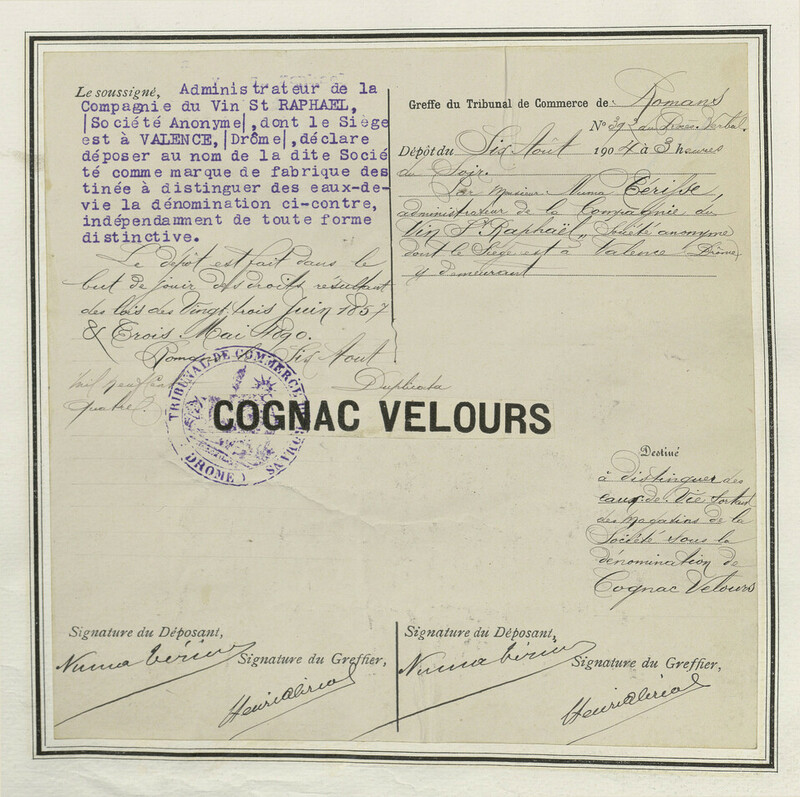 Le soussigné, Administrateur de la
Compagnie du Vin St RAPHAEL,
|Société Anonyme|, dont le Siège
est à VALENCE, |Drôme|, déclare
déposer au nom de la dite Socié
té comme marque de fabrique des
tinée à distinguer des eaux-de-
vie la dénomination ci-contre,
indépendamment de toute forme
distinctive.
Le dépôt est fait dans le
but de jouir des droits résultant
des lois des Vingt trois Juin 1857
& Trois Mai 1890.
Romans le Six Août
mil neuf cent
quatre.
Greffe du Tribunal de Commerce de Romans
N° 393 du Procès-Verbal.
Dépôt du Six Août 1904 à 3 heures
du Soir.
Par Monsieur Numa
administrateur de la Compagnie du
Vin St Raphaël, Société anonyme
dont le Siège est à Valence (Drôme)
y demeurant
Duplicata
TRIBUNAL DE COMMERCE DE ROMANS
(DROME)
COGNAC VELOURS
Destiné
à distinguer des
eaux-de-Vie sortant
des magasins de la
Société sous la
dénomination de
Cognac Velours
Signature du Déposant,
Numa
Signature du Greffier,
Signature du Déposant,
Numa
Signature du Greffier,